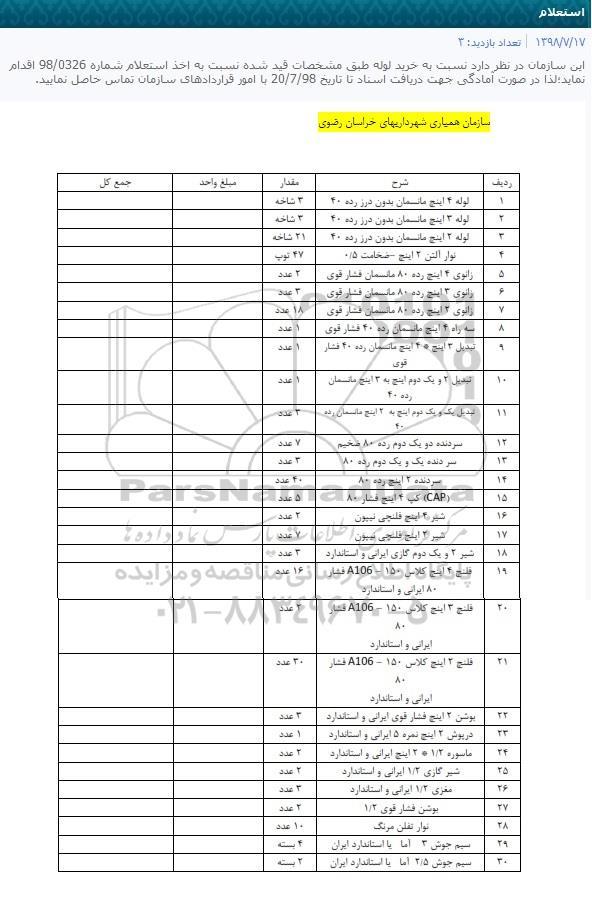 استعلام
۱۳۹۸/۷/۱۷ تعداد بازدید: ۳
این سازمان در نظر دارد نسبت به خرید لوله طبق مشخصات قید شده نسبت به اخذ استعلام شماره 98/0326 اقدام
نماید؛لذا در صورت آمادگی جهت دریافت اسناد تا تاریخ 20/7/98 با امور قراردادهای سازمان تماس حاصل نمایید.
سازمان همیاری شهرداریهای خراسان رضوی
ردیف شرح مقدار مبلغ واحد جمع کل
۱ لوله ۴ اینچ مانسمان بدون درز رده ۴۰ ۳ شاخه
۲ لوله ۳ اینچ مانسمان بدون درز رده ۴۰ ۳ شاخه
۳ لوله ۲ اینچ مانسمان بدون درز رده ۴۰ ۲۱ شاخه
۴ نوار آلتن ۲ اینچ –ضخامت ۰/۵ ۴۷ توپ
۵ زانوی ۴ اینچ رده ۸۰ مانسمان فشار قوی ۲ عدد
۶ زانوی ۳ اینچ رده ۸۰ مانسمان فشار قوی ۳ عدد
۷ زانوی ۲ اینچ رده ۸۰ مانسمان فشار قوی ۱۸ عدد
۸ سه راه ۴ اینچ مانسمان رده ۴۰ فشار قوی ۱ عدد
۹ تبدیل ۳ اینچ * ۴ اینچ مانسمان رده ۴۰ فشار ۱ عدد
قوی
۱۰ تبدیل ۲ و یک دوم اینچ به ۳ اینچ مانسمان ۱ عدد
رده ۴۰
۱۱ تبدیل یک و یک دوم اینچ به ۲ اینچ مانسمان رده ۳ عدد
۴۰
۱۲ سردنده دو یک دوم رده ۸۰ ضخیم ۷ عدد
۱۳ سر دنده یک و یک دوم رده ۸۰ ۳ عدد
۱۴ سردنده ۲ اینچ رده ۸۰ ۴۰ عدد
۱۵ (CAP) کپ ۴ اینچ فشار ۸۰ ۵ عدد
۱۶ شیر ۴ اینچ فلنچی نیپون ۲ عدد
۱۷ شیر ۲ اینچ فلنچی نیپون ۷ عدد
۱۸ شیر ۲ و یک دوم گازی ایرانی و استاندارد ۳ عدد
۱۹ فلنچ ۴ اینچ کلاس ۱۵۰ – A106 فشار ۱۶ عدد
۸۰ ایرانی و استاندارد
۲۰ فلنچ ۳ اینچ کلاس ۱۵۰ – A106 فشار ۲ عدد
۸۰
ایرانی و استاندارد
۲۱ فلنچ ۲ اینچ کلاس ۱۵۰ – A106 فشار ۳۰ عدد
۸۰
ایرانی و استاندارد
۲۲ بوشن ۲ اینچ فشار قوی ایرانی و استاندارد ۳ عدد
۲۳ درپوش ۲ اینچ نمره ۵ ایرانی و استاندارد ۱ عدد
۲۴ ماسوره ۱/۲ * ۲ اینچ ایرانی و استاندارد ۲ عدد
۲۵ شیر گازی ۱/۲ ایرانی و استاندارد ۲ عدد
۲۶ مغزی ۱/۲ ایرانی و استاندارد ۳ عدد
۲۷ بوشن فشار قوی ۱/۲ ۲ عدد
۲۸ نوار تفلن مرنگ ۱۰ عدد
۲۹ سیم جوش ۳ آما یا استاندارد ایران ۴ بسته
۳۰ سیم جوش ۲/۵ آما یا استاندارد ایران ۲ بسته
ParsNamadData
مرکز فرآوری اطلاعات پارس نماد داده ها
پایگاه اطلاع رسانی مناقصه و مزایده
۰۲۱-۸۸۳۴۹۶۷۰-۵